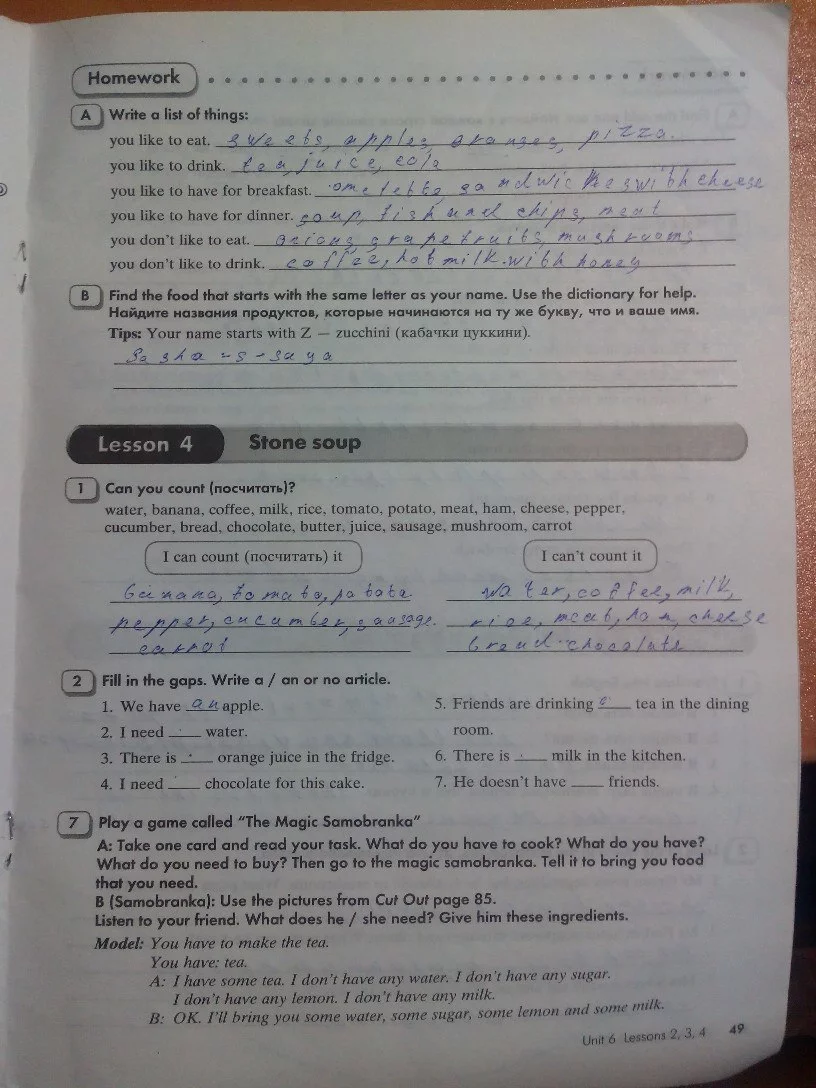 Homework
A Write a list of things:
you like to eat. sweets, apples, oranges, pizza.
you like to drink. tea, juice, cola
you like to have for breakfast. omelette sandwiches with cheese
you like to have for dinner. soup, fish and chips, meat
you don't like to eat. onions, grapefruits, mushrooms
you don't like to drink. coffee, hot milk with honey
B Find the food that starts with the same letter as your name. Use the dictionary for help.
Найдите названия продуктов, которые начинаются на ту же букву, что и ваше имя.
Tips: Your name starts with Z — zucchini (кабачки цуккини).
Sasha - s - soya
Lesson 4 Stone soup
1 Can you count (посчитать)?
water, banana, coffee, milk, rice, tomato, potato, meat, ham, cheese, pepper,
cucumber, bread, chocolate, butter, juice, sausage, mushroom, carrot
I can count (посчитать) it I can't count it
banana, tomato, potato water, coffee, milk,
pepper, cucumber, sausage. rice, meat, ham, cheese
carrot bread chocolate
2 Fill in the gaps. Write a / an or no article.
1. We have an apple.
2. I need ___ water.
3. There is ___ orange juice in the fridge.
4. I need ___ chocolate for this cake.
5. Friends are drinking ___ tea in the dining
room.
6. There is ___ milk in the kitchen.
7. He doesn't have ___ friends.
7 Play a game called "The Magic Samobranka"
A: Take one card and read your task. What do you have to cook? What do you have?
What do you need to buy? Then go to the magic samobranka. Tell it to bring you food
that you need.
B (Samobranka): Use the pictures from Cut Out page 85.
Listen to your friend. What does he / she need? Give him these ingredients.
Model: You have to make the tea.
You have: tea.
A: I have some tea. I don't have any water. I don't have any sugar.
I don't have any lemon. I don't have any milk.
B: OK. I'll bring you some water, some sugar, some lemon and some milk.
Unit 6 Lessons 2, 3, 4 49